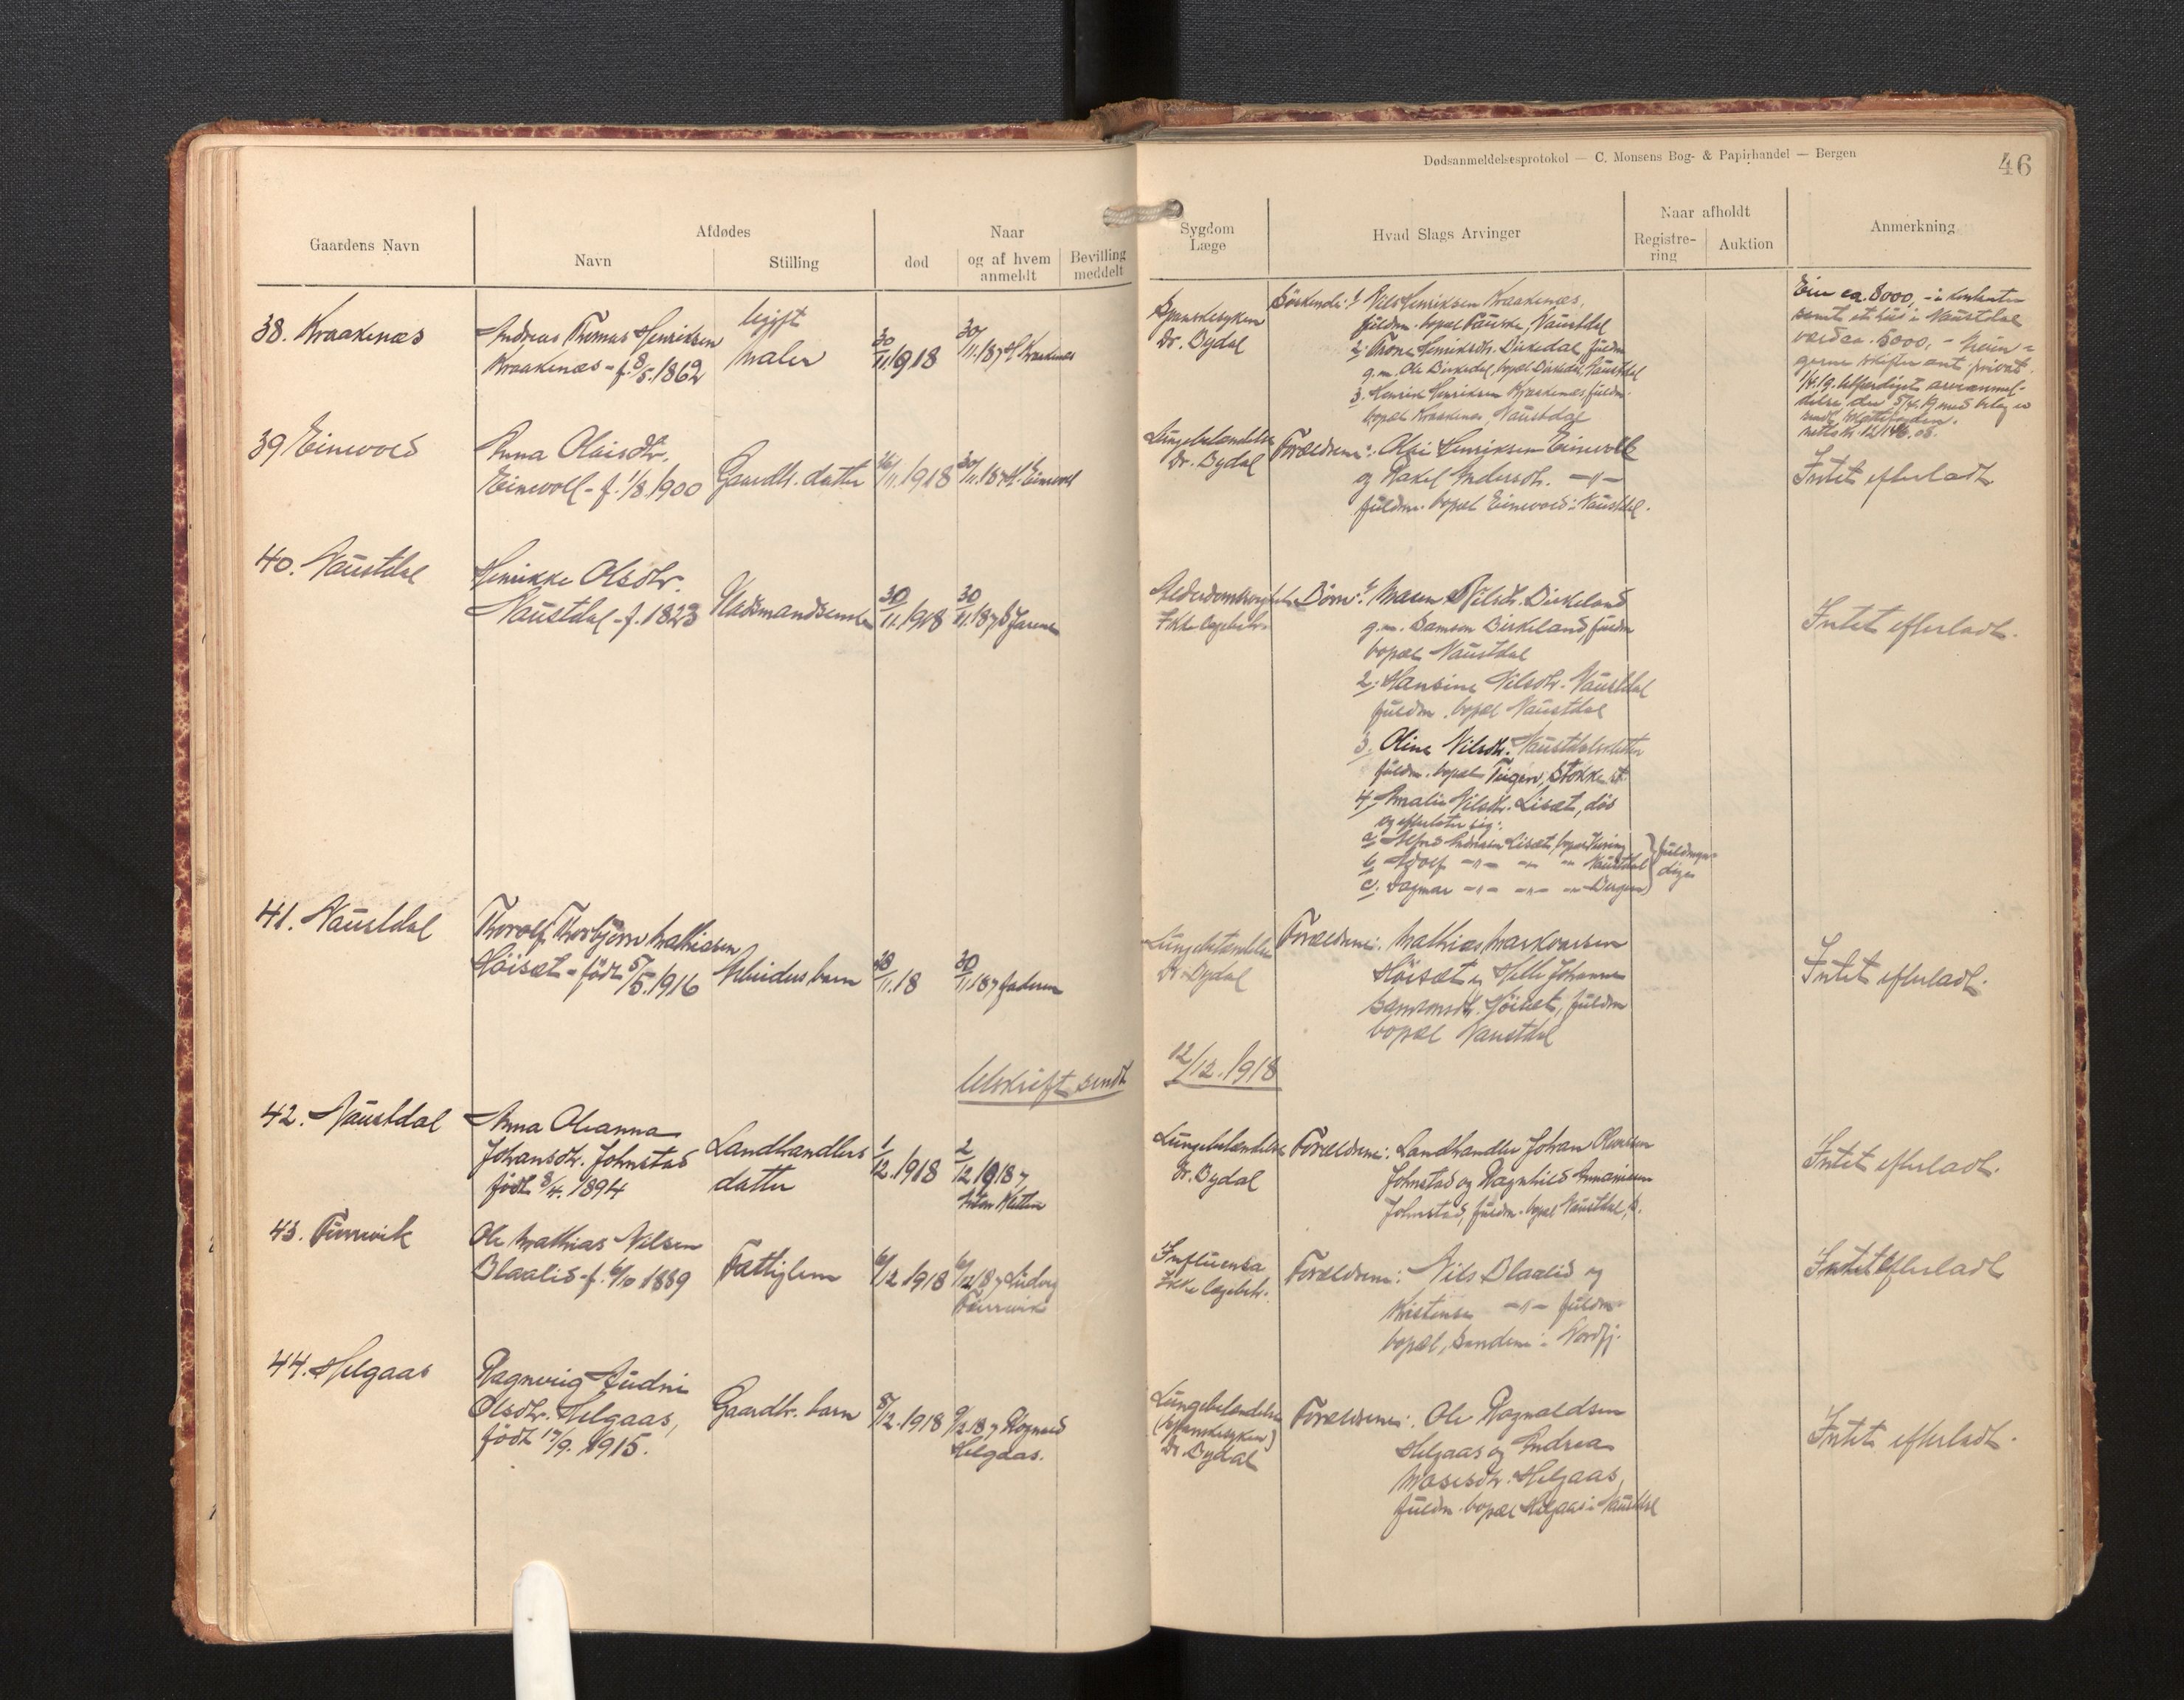 Dødsanmeldelsesprotokol — C. Monsens Bog- & Papirhandel — Bergen
46
Gaardens Navn
Afdødes
Navn
Stilling
Naar
død
og af hvem anmeldt
Bevilling meddelt
Sygdom
Læge
Hvad Slags Arvinger
Naar afholdt
Registrering
Auktion
Anmerkning
38. Kraakenæs
Andreas Thomas Henriksen
Kraakenæs - f. 8/5. 1862
Ugift
maler
30/11. 1918
30/11. 18 H Kraakenæs
Spanskesyken
Dr. Bydal
Søskende: 1. Nils Henriksen Kraakenæs,
fuldm. bopæl Fauske, Naustdal
2. Trone Henriksdtr. Birkedal, fuldm
g.m. Ole Birkedal, bopæl Birkedal, Naustdal
3. Henrik Henriksen Kraakenæs, fuldm.
bopæl Kraakenæs, Naustdal
Eier ca. 8000, - i kontanter
samt et hus i Naustdal
værd ca. 5000, -
privat.
39 Einevold
Anna Olaisdtr.
Einevoll - f. 1/8. 1900
Gaardbr. datter
26/11. 1918
30/11. 18 Einevoll
Lungebetændelse
Dr. Bydal
Forældrene: Olai Henriksen Einevoll
og Rakel Andersdtr. -"-
fuldm. bopæl Einevold i Naustdal.
Intet efterladt
40. Naustdal
Henrikke Olsdtr.
Naustdal - f. 1823
Pladsmandsenke
30/11. 1918
30/11. 18
Alderdomssvaghet
Ikke lægebeh.
Børn: 1. Maren Nilsdtr. Birkeland
g.m. Samson Birkeland, fuldm
bopæl Naustdal
2. Hansine Nilsdtr. Naustdal
fuldm. bopæl Naustdal
3. Oline Nilsdtr.
fuldm. bopæl Teigen, Stokke st.
4. Amalie Nilsdtr. Lisæt, død
og efterlater sig:
a. Alfred Andersen Lisæt, bopæl
b. Adolf -"- -"- -"- Naustdal
c. Dagmar -"- -"- -"- Bergen
fuldmyndige
Intet efterladt.
41. Naustdal
Thorolf Thorbjørn Mathiasen
Høisæt - født 5/5. 1916
Arbeiders barn
28/11. 18
30/11. 18 faderen
Lungebetændelse
Dr. Bydal
Forældrene: Mathias Markvardsen
Høisæt og Helle Johanne
Samsonsdtr. Høisæt, fuldm
bopæl Naustdal
Intet efterladt.
Utskrift sendt 12/12. 1918
42. Naustdal
Anna Oleanna
Johansdtr. Johnstad
født 8/4. 1894
Landhandlers
datter
1/12. 1918
2/12 1918
Lungebetændelse
Dr. Bydal
Forældrene: Landhandler Johan
Johnstad og Ragnhild
Johnstad, fuldm. bopæl Naustdal,
Intet efterladt.
43. Furevik
Ole Mathias Nilsen
Blaalid - f. 6/10 1889
Fattiglem
6/12 1918
6/12 18 Ludvig
Furevik
Influensa
Ikke lægebeh.
Forældrene: Nils Blaalid og
Kristense -"- fuldm
bopæl, Sandene i Nordfj.
Intet efterladt
44. Helgaas
Ragnvig Gudni
Olsdtr. Helgaas,
født 17/9. 1915.
Gaardbr. barn
8/12. 1918
9/12 18 Ragnvald
Helgaas.
Lungebetændelse
(Spanskesyken)
Dr. Bydal
Forældrene: Ole Ragnvaldsen
Helgaas og Andrea
Mosesdtr. Helgaas,
fuldm. bopæl Helgaas i Naustdal
Intet efterladt.